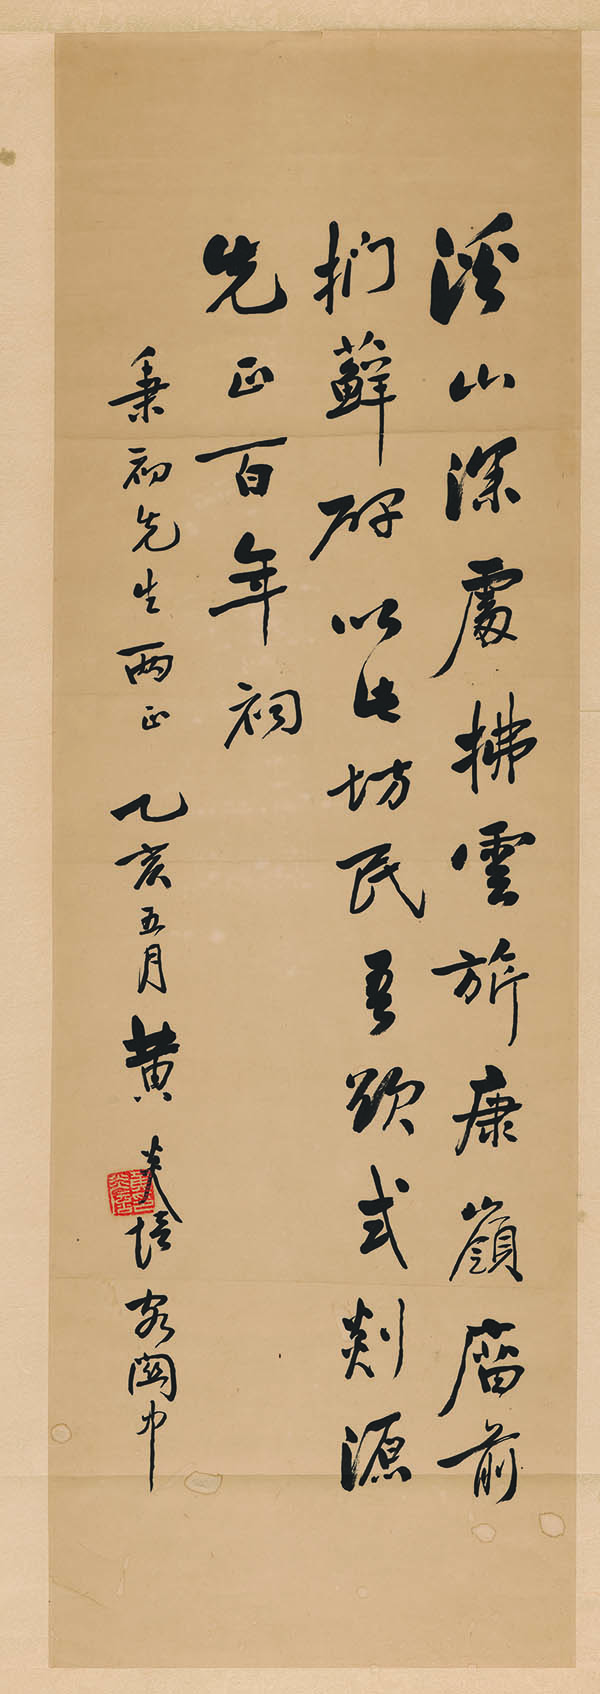 溪山深處拂雲旂康嶺庿前
捫蘚碑以此坊民吾欲式剡源
先正百年祠
秉初先生两正 乙亥五月 黄炎培客中